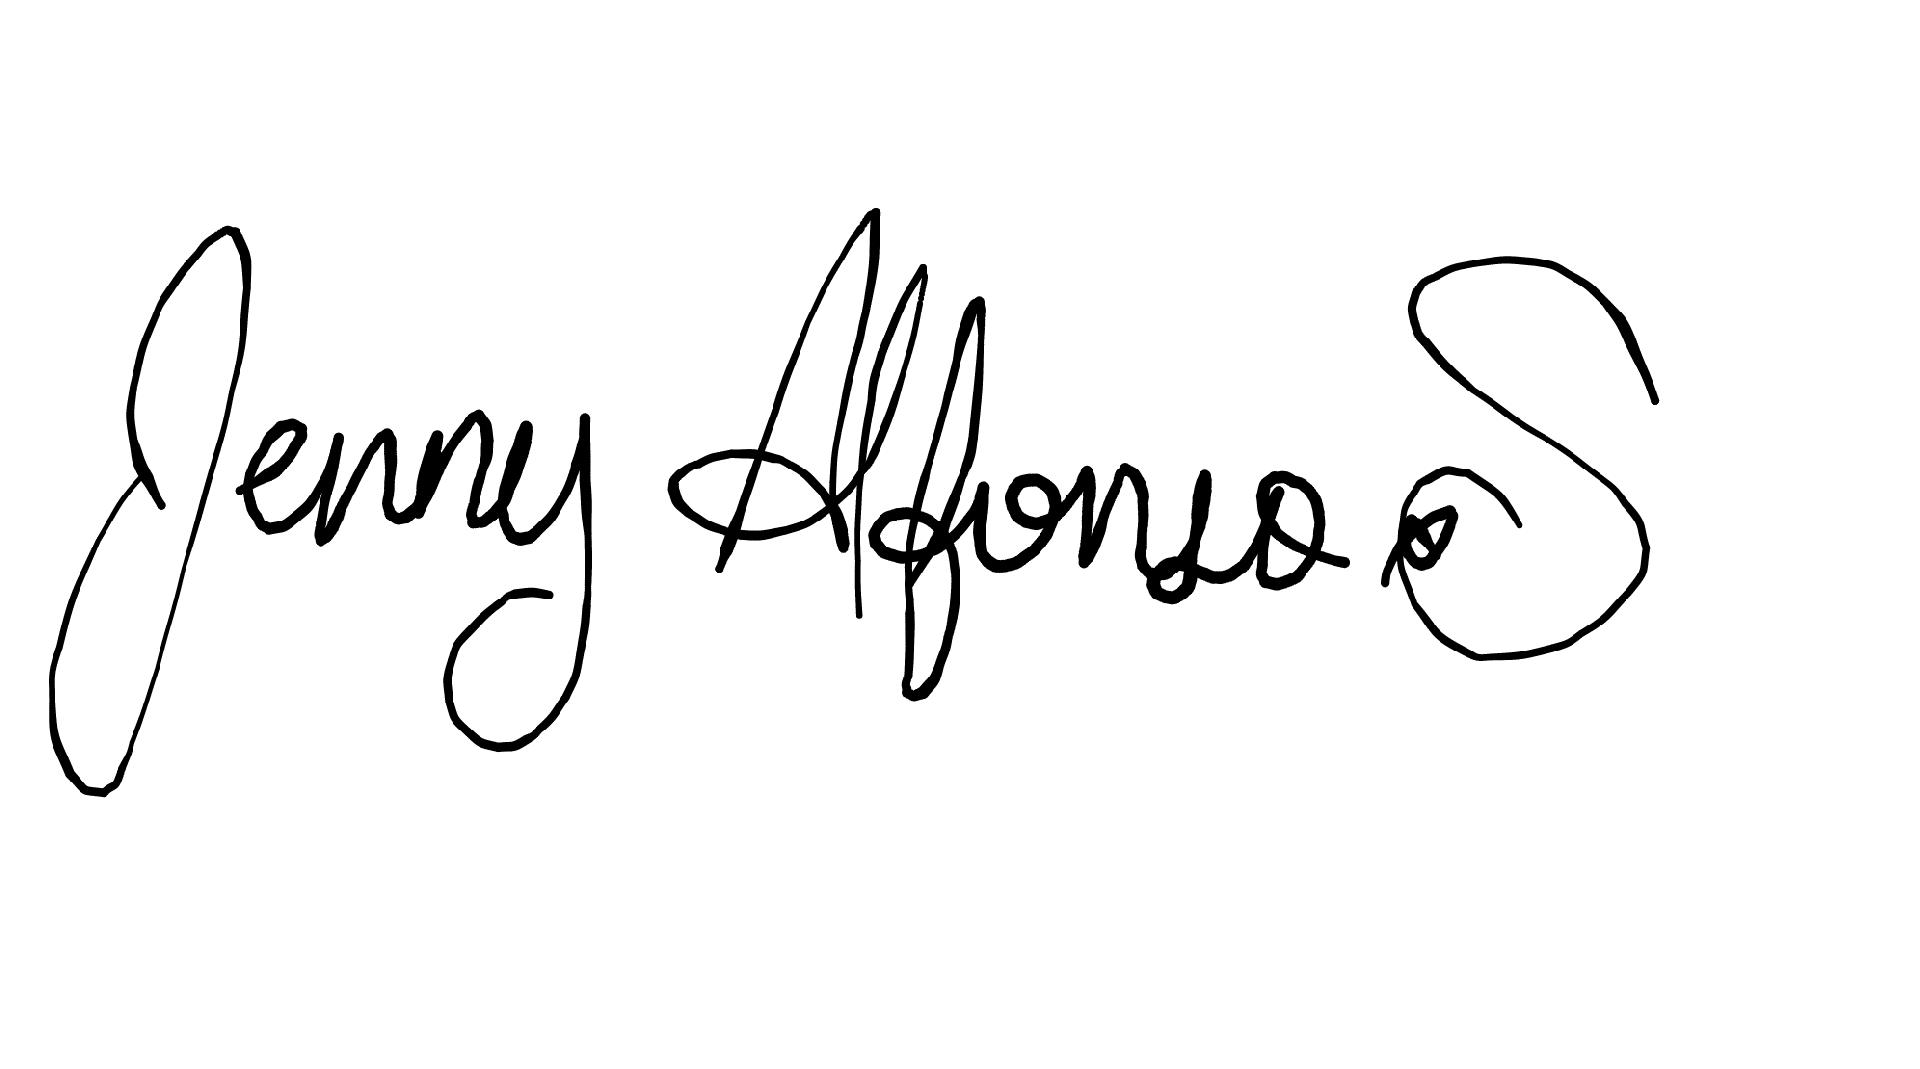 Jenny Alfonso S